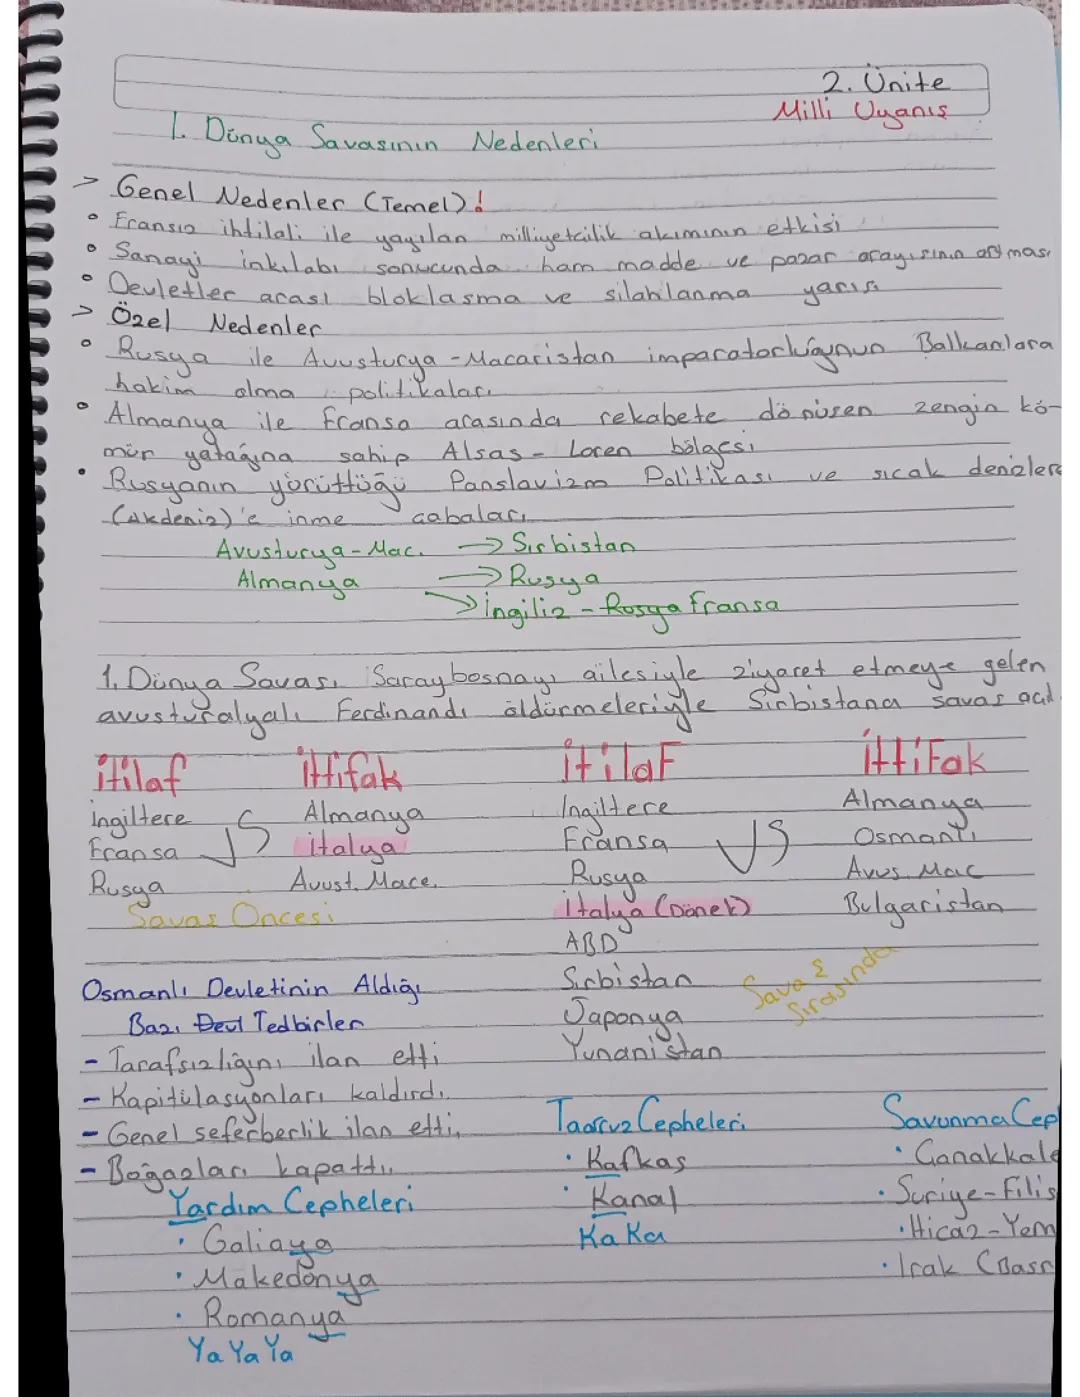 2. Ünite
Milli Uyanış
1. Dünya Savasının Nedenleri
> Genel Nedenler (Temel)!
• Fransız ihtilali ile yayılan milliyetcilik akımının etkisi
• Sanayi inkılabı sonucunda ham madde ve pazar arayışının artması
• Devletler arası bloklasma ve silahlanma yarışı
> Özel Nedenler
• Rusya ile Avusturya-Macaristan imparatorluğunun Balkanlara
hakim olma politikaları
• Almanya ile Fransa arasında rekabete dönüsen zengin kö-
mür yatağına sahip Alsas-Loren bölgesi
• Rusyanın yürüttüğü Panslavizm Politikası ve sıcak denizlere
(Akdeniz)'e inme cabaları
Avusturya-Mac. → Sırbistan
Almanya → Rusya
→ ingiliz - Rusya Fransa
1. Dünya Savası Saraybosnayı ailesiyle ziyaret etmeye gelen
avusturalyalı Ferdinandı öldürmeleriyle Sırbistana savas acıl
itilaf ittifak itilaf ittifak
ingiltere Almanya İngiltere Almanya
Fransa VS italya Fransa VS Osmanlı
Rusya Avust. Mace. Rusya Avus. Mac
Savas Öncesi italya (Dönek) Bulgaristan
ABD
Sırbistan
Savas Sırasında
Japonya
Yunanistan
Osmanlı Devletinin Aldığı
Bazı Devl Tedbirler
- Tarafsızlığını ilan etti
- Kapitülasyonları kaldırdı.
- Genel seferberlik ilan etti.
- Boğazları kapattı.
Yardım Cepheleri
• Galiaya
• Makedonya
• Romanya
Ya Ya Ya
Taarruz Cepheleri
• Kafkas
• Kanal
Ka Ka
Savunma Cep
• Canakkale
• Suriye-Filis
• Hicaz-Yem
• Irak (Basr